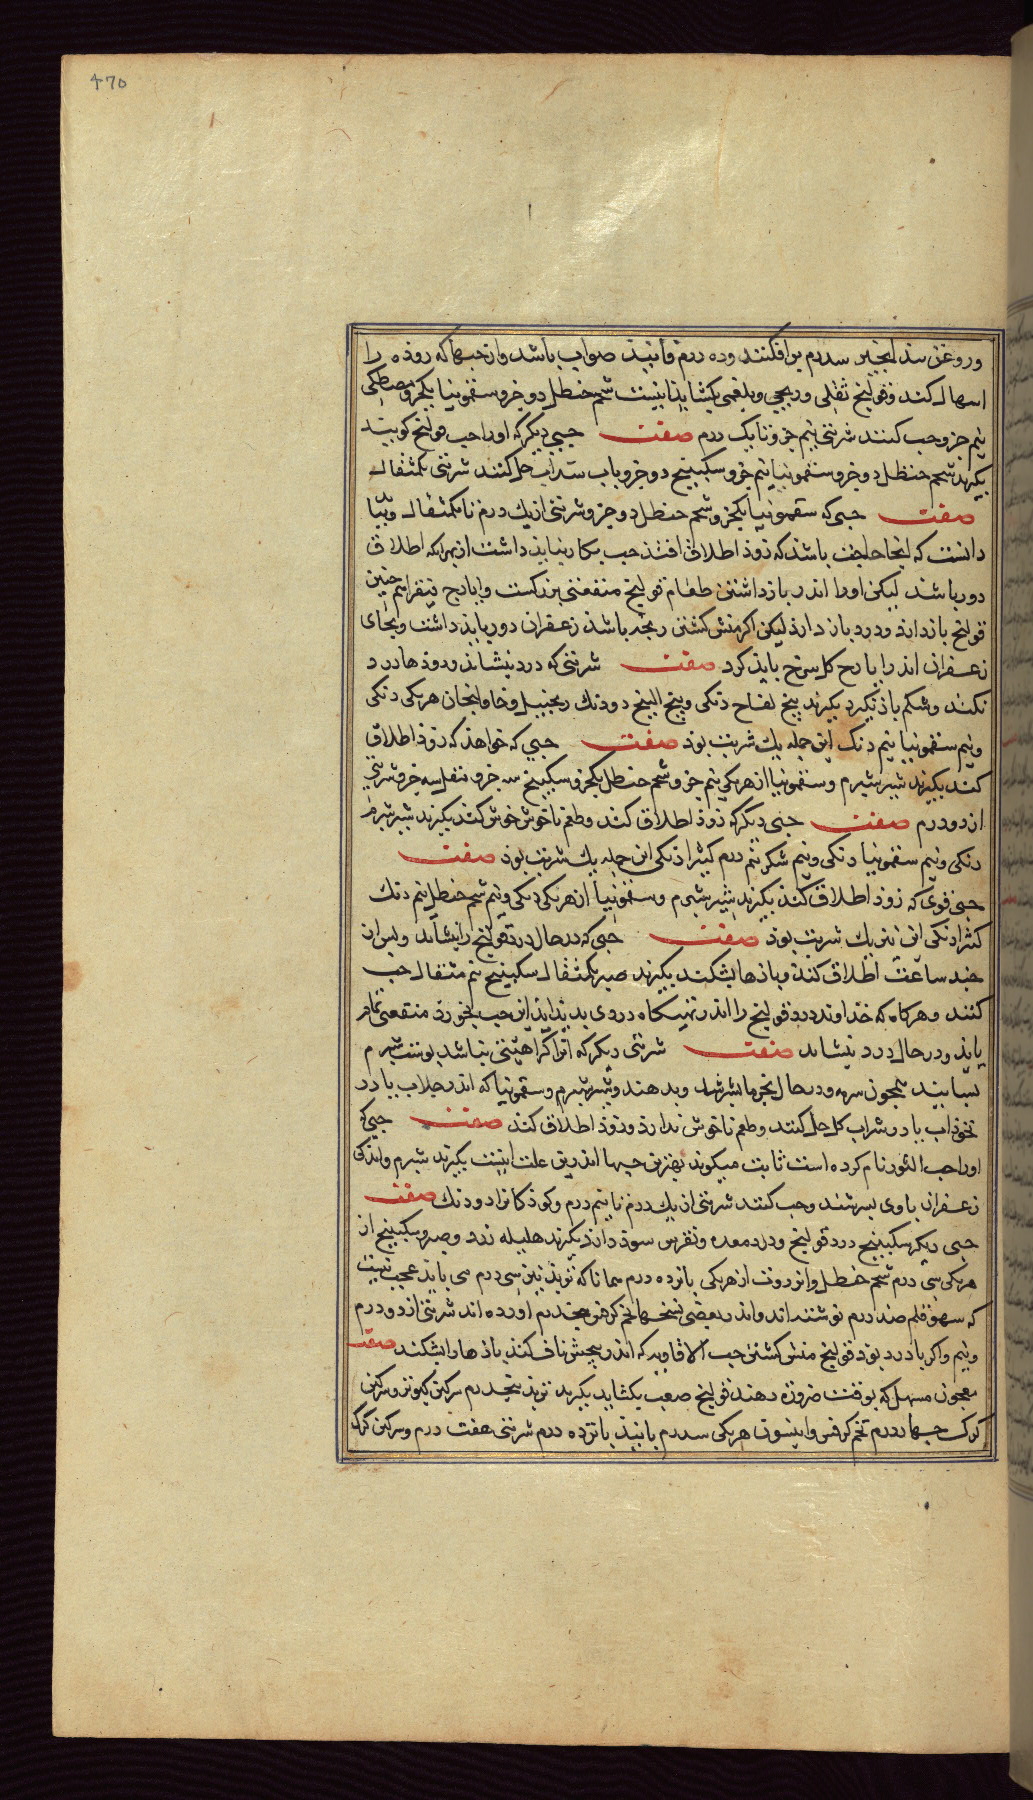 ۴۷۰
وروغن بیذ انجیر سدرم برافکنند وده درم فانیذ صواب باشد واز حبها که روذه را
اسهال کند وقولنج ثفلی وریحی وبلغمی بکشاید اینست شحم حنظل دو جزو سقمونیا یکجزو مصطکی
نیم جزو حب کنند شربتی نیم جزو تا یک درم صفت حبی دیکر که اورا حب قولنج کویند
بکیرند شحم حنظل دو جزو سقمونیا نیم جزو سکبینج دو جزو باب سداب حل کنند شربتی یکمثقال
صفت حبی که سقمونیا یکجزو شحم حنظل دو جزو شربتی از یك درم تا یکمثقال
دانست که اینجا حاجت باشد که زوذ اطلاق افتد حب بکار نباید داشت از بهر آنکه اطلاق
دور باشد لیکن اورا اندر باز داشتن طعام قولنج منفعتی بزرکست وایارج فیقرا هم چنین
قولنج باز دارد ودرد باز دارد لیکن اکر منش کشتن رنجه باشد زعفران دور باید داشت وبجای
زعفران اندر ایارج کل سرخ باید کرد صفت شربتی که درد بنشاند وروذها درد
نکند وشکم باذ نکیرد بکیرند بیخ لفاح دنکی وبیخ البنج دودنك زنجبیل وخاولنجان هریکی دنکی
ونیم سقمونیا نیم دنک این جمله یك شربت بوذ صفت حبی که خواهذ که زوذ اطلاق
کند بکیرند شیر شبرم وسقمونیا از هریکی نیم جزو شحم حنظل یکجزو سکبینج سه جزو مقل سه جزو شربتی
از دودرم صفت حبی دیکر که زوذ اطلاق کند وطعم ناخوش خوش کند بکیرند شیر شبرم
دنکی ونیم سقمونیا دنکی ونیم شکر نیم درم کثیرا دنکی این جمله یك شربت بوذ صفت
حبی قوی که زوذ اطلاق کند بکیرند شیر شبرم وسقمونیا از هریکی دنکی ونیم شحم حنظل نیم دنك
کثیرا دنکی این یك شربت بوذ صفت حبی که درحال درد قولنج را بنشاند وپس از
چند ساعت اطلاق کند وبادها بشکند بکیرند صبر یکمثقال سکبینج نیم مثقال حب
کنند وهرکاه که خداوند درد قولنج را اندر تهیکاه دردی پدید آید این حب بخورد منفعتی تمام
یابد ودرحال درد بنشاند صفت شربتی دیکر که آنرا کراهیتی نباشد
بسایند همچون سرمه ودرحال وبدهند وشیر شبرم وسقمونیا که اندر جلاب یا در
یا در شراب کل حل کنند وطعم ناخوش ندارد وزوذ اطلاق کند صفت حبی که
اورا حب نام کرده است ثابت میکوید بهترین حبها اندرین علت اینست بکیرند شبرم واندکی
زعفران با وی بسرشند وحب کنند شربتی از یك درم تا نیم درم وکوذکانرا دودنك صفت
حبی دیکر سکبینج درد قولنج ودرد معده ونقرس سود دارد بکیرند هلیله زرد وصبر وسکبینج از
هریکی سی درم شحم حنظل وانزروت از هریکی پانزده درم همانا که تربذ نیز سی درم می باید عجب نیست
که سهو قلم صد درم نوشته اند واندر بعضی نسخها تخم کرفس پنجدرم آورده اند شربتی از دودرم
ونیم واکر با درد بوذ قولنج منش کشتن حب الافاویه که اندر پیچش ناف کنند باذها را بشکند صفت
معجون مسهل که بوقت ضرورة دهند قولنج صعب بکشاید بکیرند تربذ پنجدرم سرکین کبوتر وسرکین
کرک چهار درم تخم کرفس وانیسون هریکی سدرم پانزده درم شربتی هفت درم وسرکین کرک